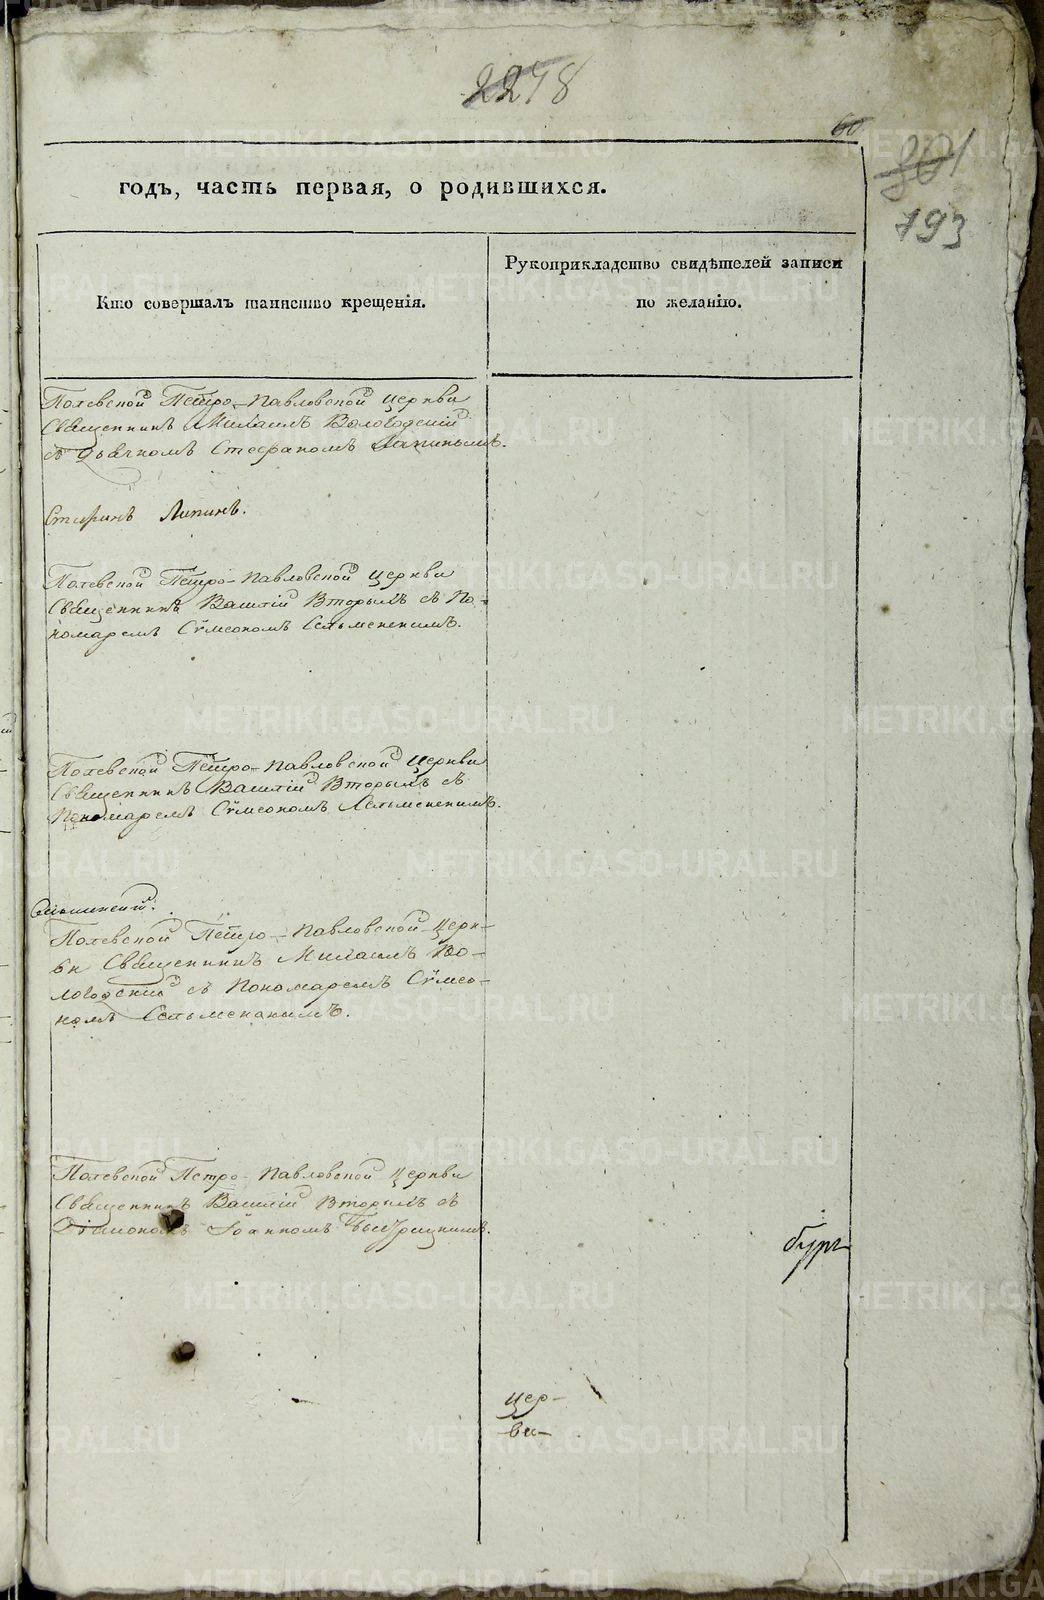 2278
60
801
793
годъ, часть первая, о родившихся.
Кто совершалъ таинство крещенія.
Рукоприкладство свидѣтелей записи
по желанію.
Полевской Петро-Павловской церкви
Священникъ Михаилъ Вологодскій
съ Дьячкомъ Стефаномъ
Стефанъ
Полевской Петро-Павловской церкви
Священникъ Василій Вторыхъ съ По-
номаремъ Сѵмеономъ
Полевской Петро-Павловской церкви
Священникъ Василій Вторыхъ съ
Пономаремъ Сѵмеономъ
Полевской Петро-Павловской церк-
ви Священникъ Михаилъ Во-
логодскій съ Пономаремъ Сѵмео-
номъ
Полевской Петро-Павловской церкви
Священникъ Василій Вторыхъ съ
Діакономъ Іоанномъ
бург
цер-
ви-
METRIKI.GASO-URAL.RU